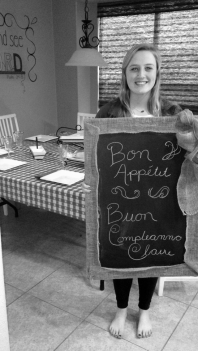 and see
Bon
Appétit
Buon
Compleanno
Claire